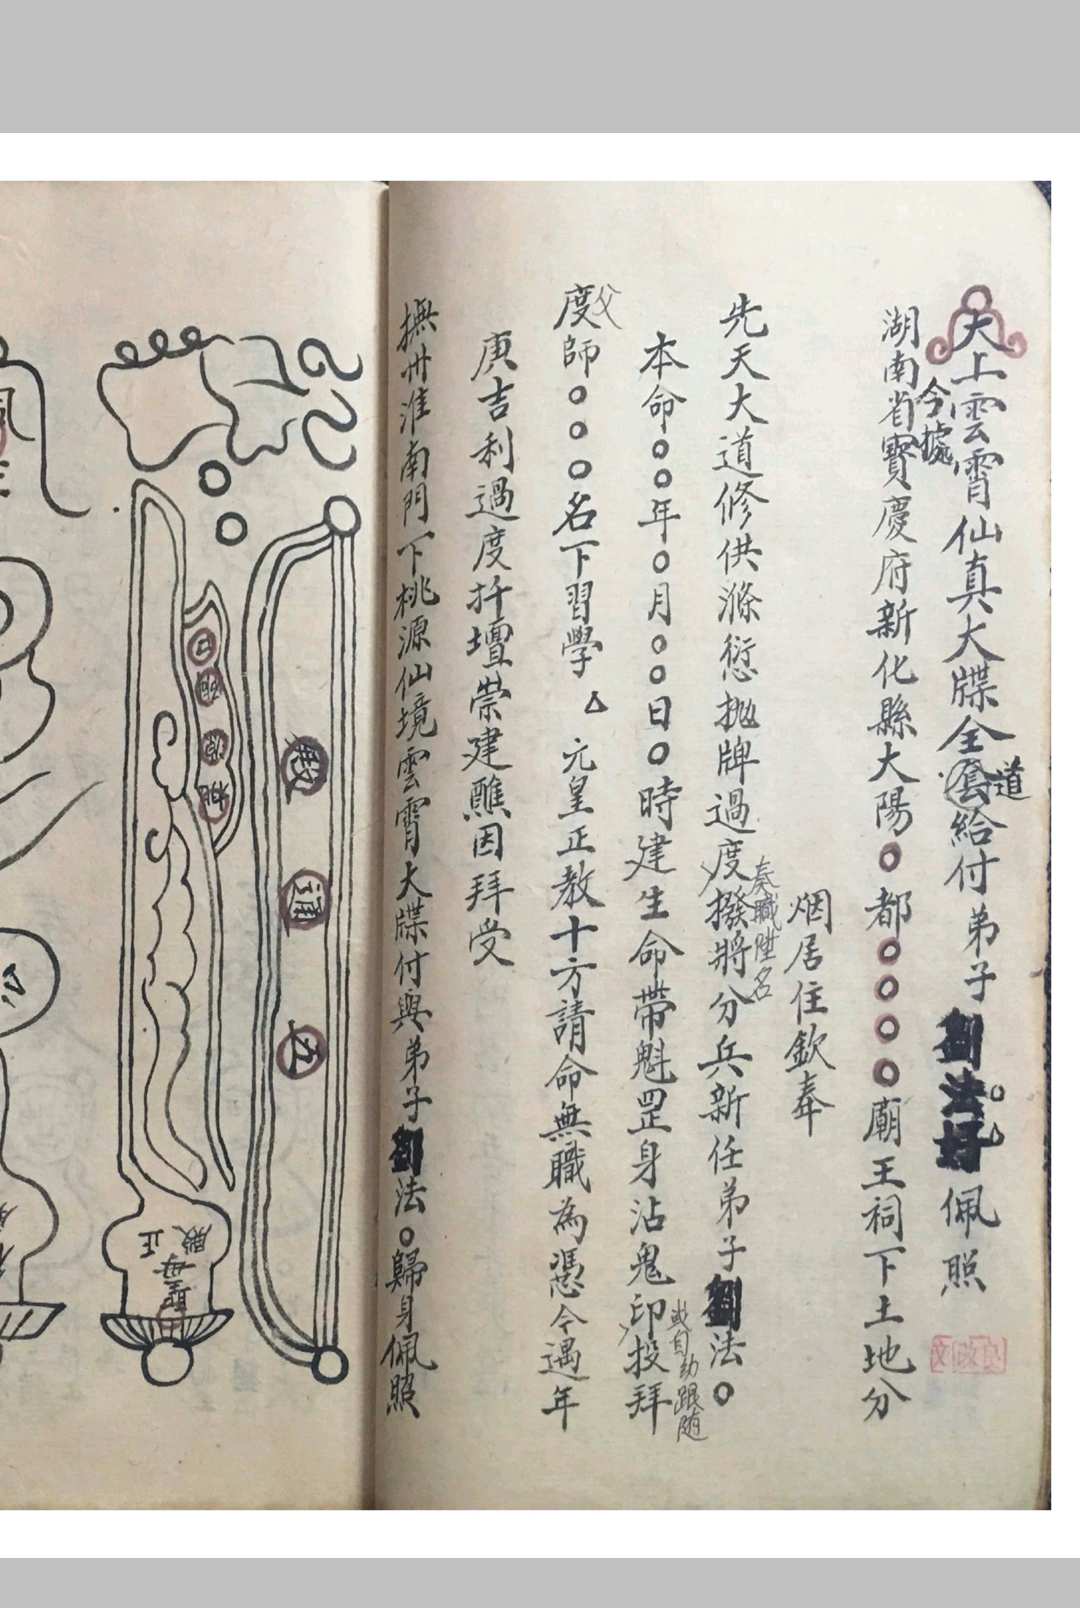 太上雲霄仙真大牒全套給付弟子劉法好佩照
道
今據
湖南省寶慶府新化縣大陽○都○○○○廟王祠下土地分
烟居住欽奉
先天大道修供滌愆拋牌過度撥將分兵新任弟子劉法○
奏職陞名
本命○○年○月○○日○時建生命帶魁罡身沾鬼印投拜
或自幼跟随
度師○○○名下習學△元皇正教十方請命無職為憑今遇年
父
庚吉利過度扦壇崇建醮因拜受
撫州淮南門下桃源仙境雲霄大牒付與弟子劉法○歸身佩照
殿
通
五
桃
源
日
正
殿
聖母